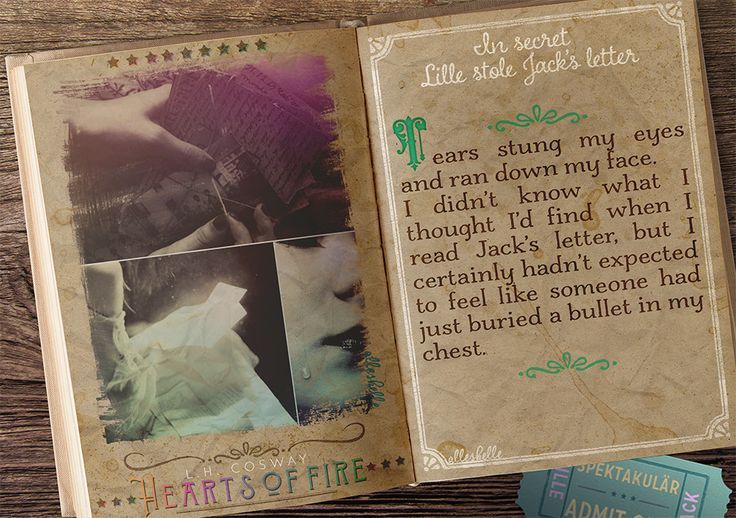 L.H. COSWAY
HEARTS OF FIRE
elleshelle
In secret
Lille stole Jack's letter
Tears stung my eyes
and ran down my face.
I didn't know what I
thought I'd find when I
read Jack's letter, but I
certainly hadn't expected
to feel like someone had
just buried a bullet in my
chest.
elleshelle
SPEKTAKULÄR
ADMIT